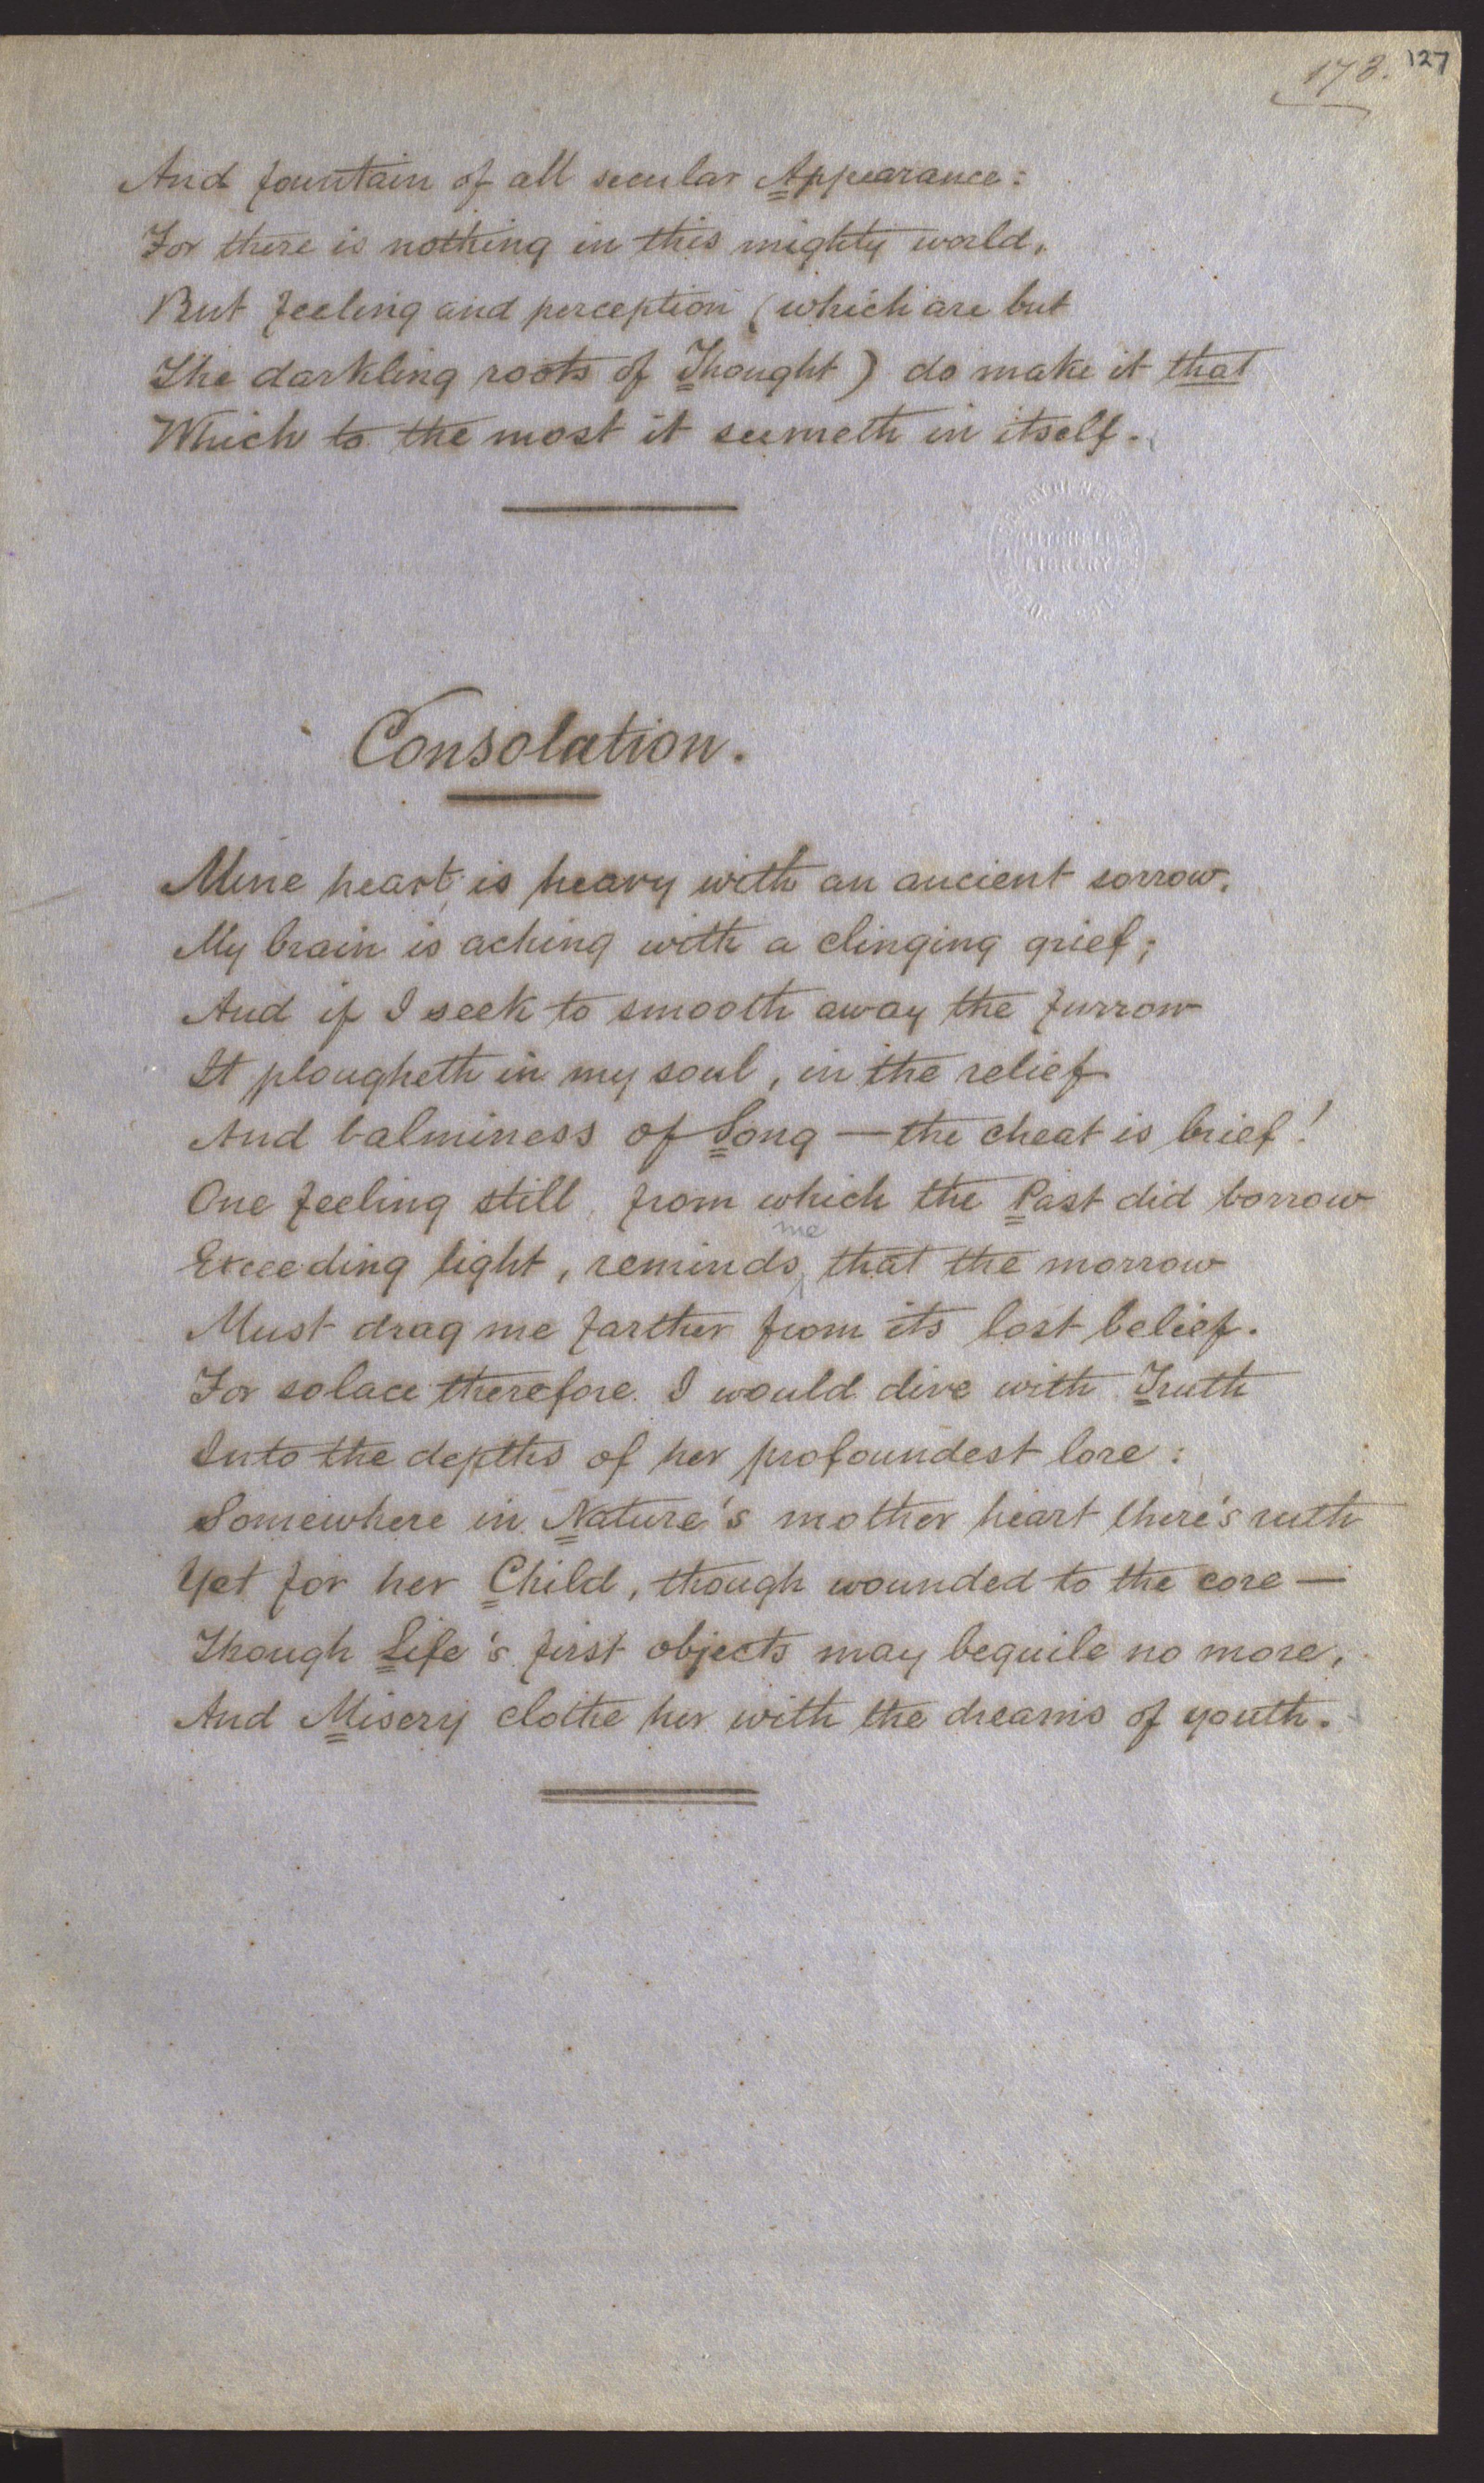 173. 127
And fountain of all secular Appearance:
For there is nothing in this mighty world,
But feeling and perception (which are but
The darkling roots of Thought) do make it that
Which to the most it seemeth in itself.
MITCHELL
LIBRARY
Consolation.
Mine heart is heavy with an ancient sorrow,
My brain is aching with a clinging grief;
And if I seek to smooth away the furrow
It plougheth in my soul, in the relief
And balminess of Song — the cheat is brief!
One feeling still, from which the Past did borrow
me
Exceeding light, reminds that the morrow
Must drag me farther from its lost belief.
For solace therefore I would dive with Truth
Into the depths of her profoundest lore:
Somewhere in Nature's mother heart there's ruth
Yet for her Child, though wounded to the core —
Though Life's first objects may beguile no more,
And Misery clothe her with the dreams of youth.